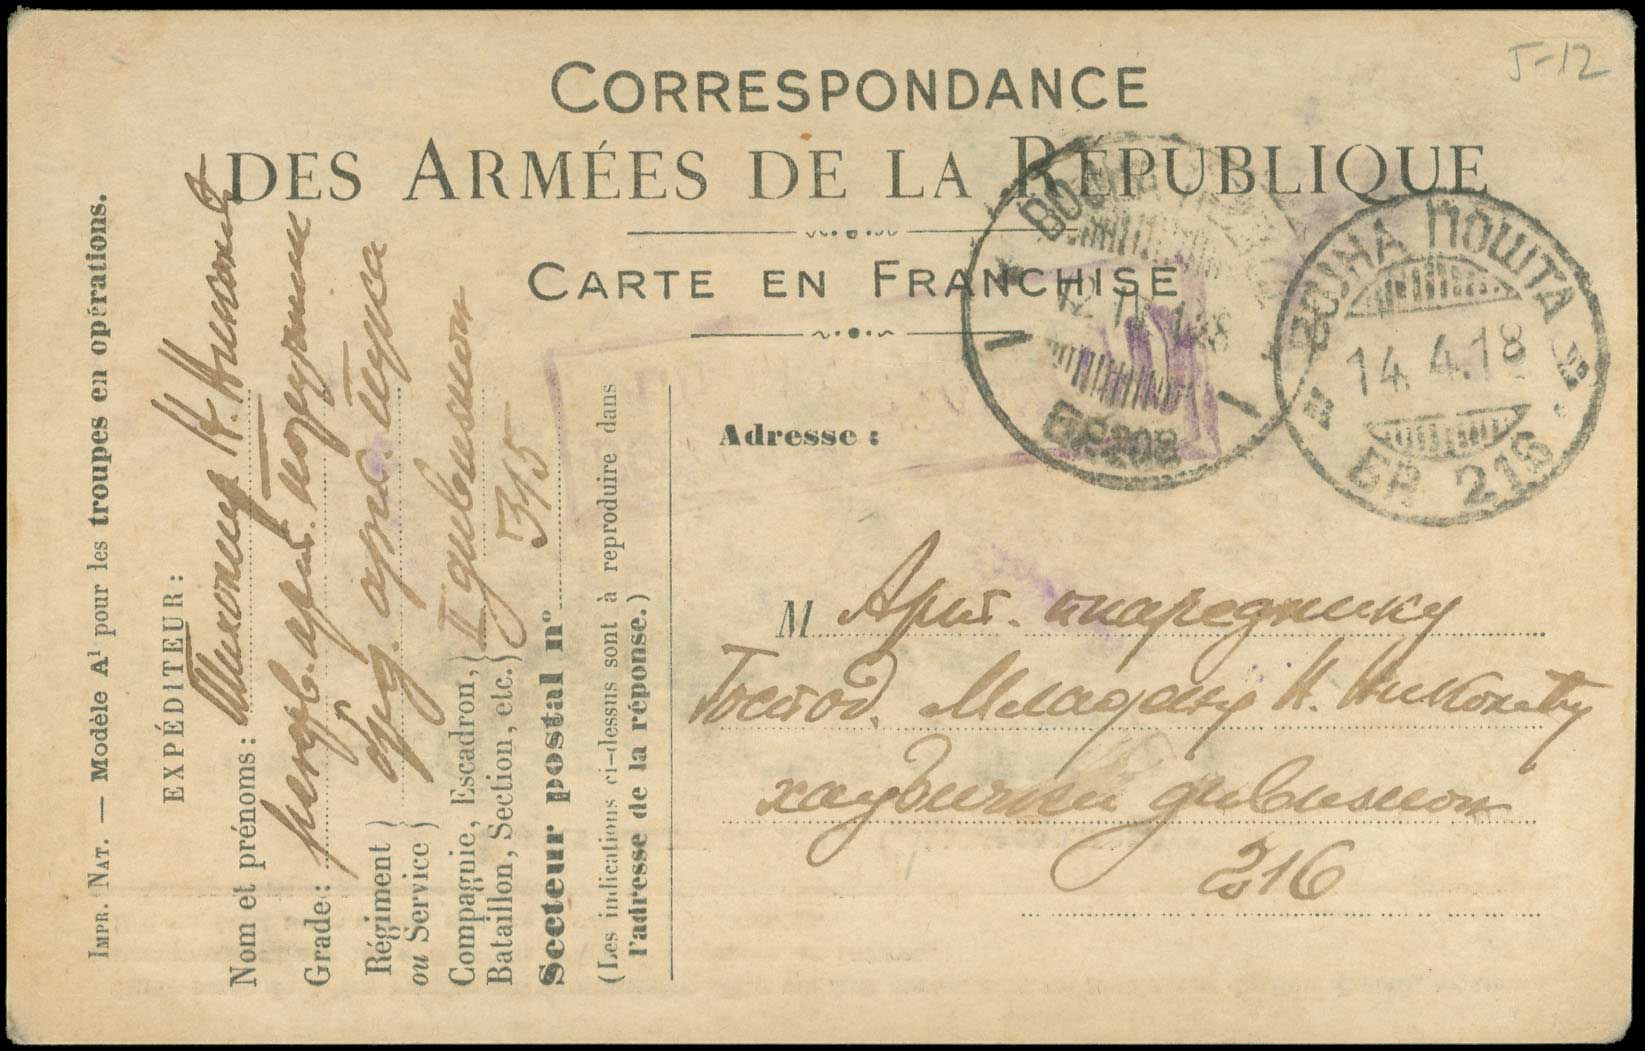 J-12
CORRESPONDANCE
DES ARMÉES DE LA RÉPUBLIQUE
CARTE EN FRANCHISE
ВОЈНА ПОШТА
14.4.18
БР. 216
БР. 208
IMPR. NAT. — Modèle A¹ pour les troupes en opérations.
EXPÉDITEUR:
Nom et prénoms: Н. Николић
Grade: резерв. арт. поручник
Régiment
ou Service} 
Compagnie, Escadron,
Bataillon, Section, etc.} II дивизион
Secteur postal n° 315
(Les indications ci-dessus sont à reproduire dans
l'adresse de la réponse.)
Adresse:
M Арт. нареднику
Господ. Младену Н. Николићу
хаубички дивизион
216